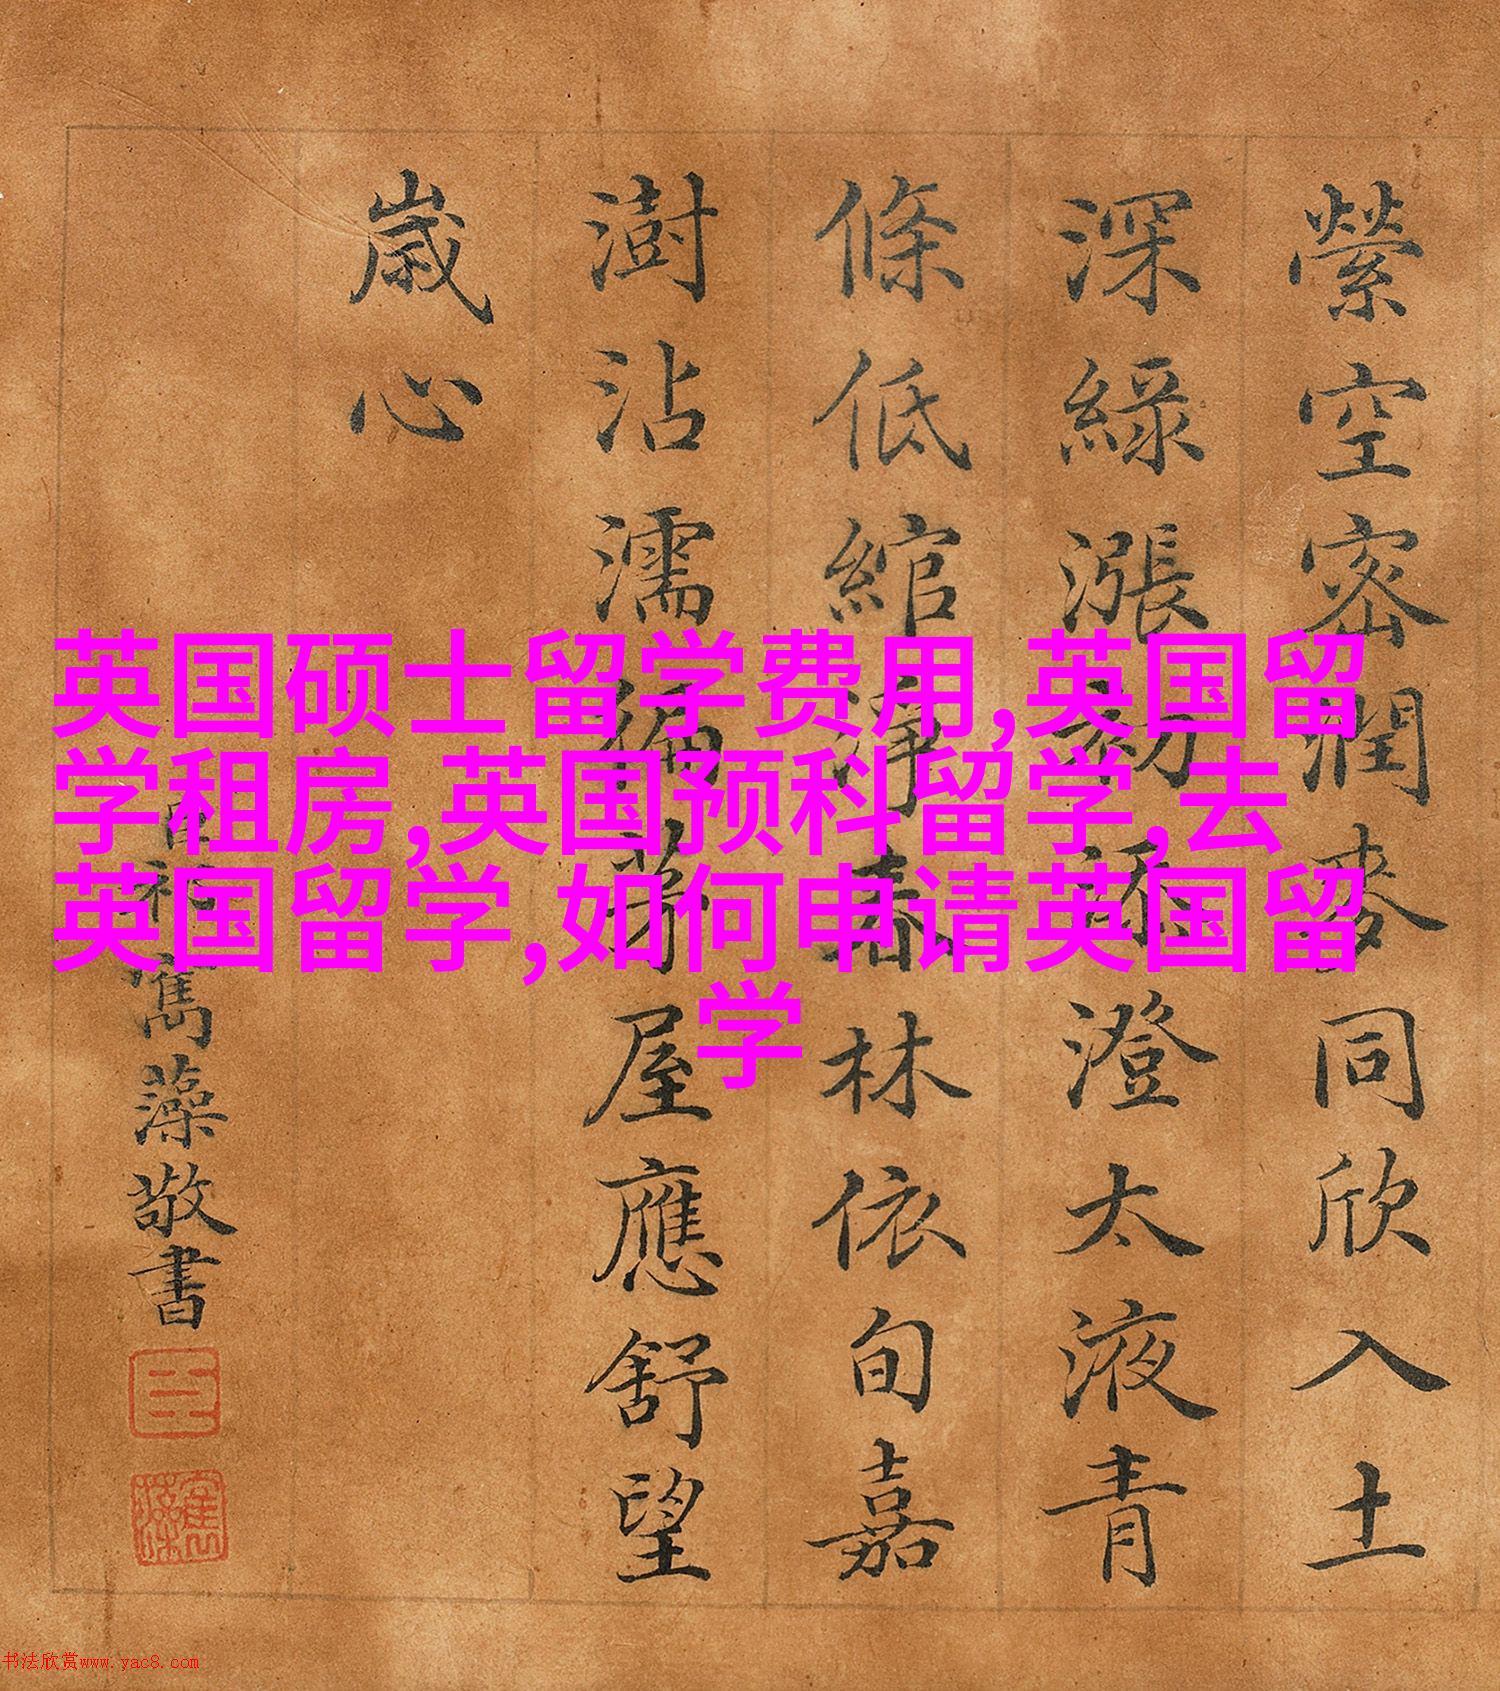 縈空密潤麥同欣入土
深綠漲初添澄太液青
條低綰淨春林依旬嘉
澍沾濡徧茅屋應舒望
嵗心
臣祁寯藻敬書
臣
寯藻
英国硕士留学费用,英国留
学租房,英国预科留学,去
英国留学,如何申请英国留
学
书法欣赏www.yac8.com